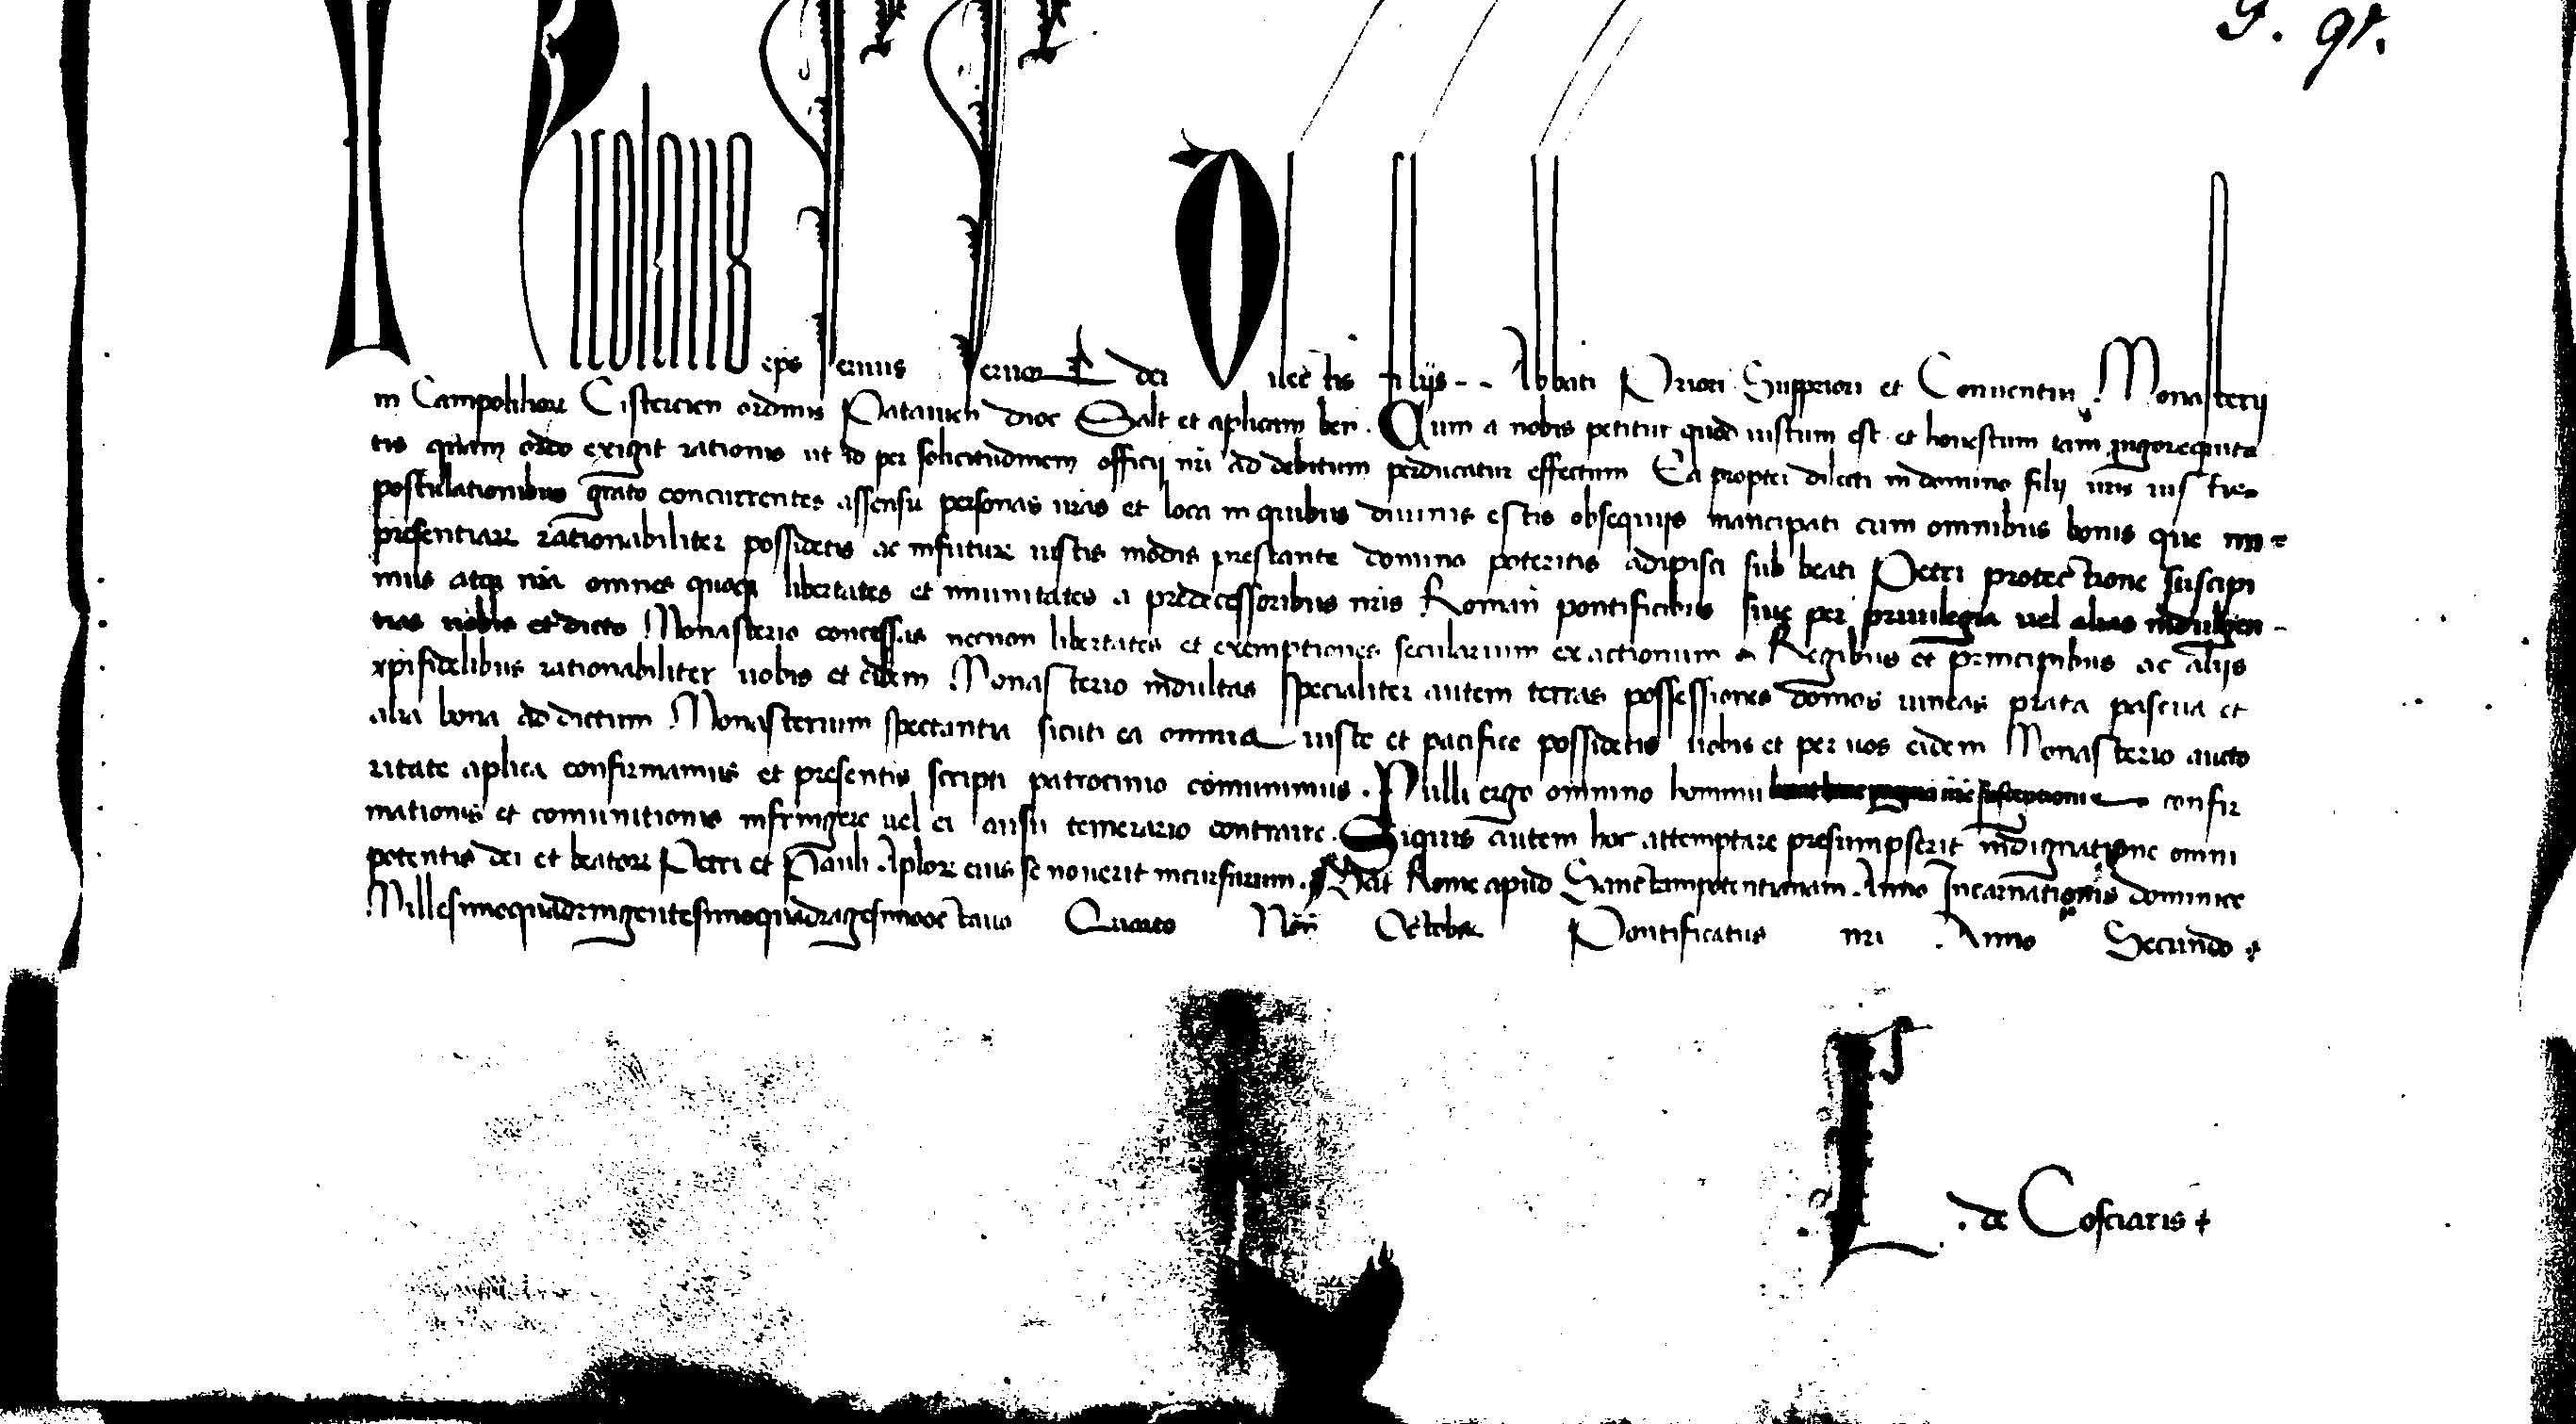 G. gr.
Nicolaus eps seruus seruor dei Dilectis filijs - - Abbati Priori Suppriori et Conuentui Monasterij
in Campolilior Cistercien ordinis Patauien dioc Salt et aplicam ben. Cum a nobis petitur quod iustum est et honestum tam uigor equita
tis quam ordo exigit rationis ut id per solicitudinem officij nri ad debitum perducatur effectum Ea propter dilecti in domino filij uris ius tis
postulationibus grato concurrentes assensu personas uras et loca in quibus diuinis estis obsequijs mancipati cum omnibus bonis que im
presentiar rationabiliter possidetis ac infutur iustis modis prestante domino poteritis adipisci sub beati Petri protectione suscipi
mus atq nra omnes quoq libertates et imunitates a predecessoribus nris Roman pontificibus siue per priuilegia uel alias indulgen
tias uobis et dicto Monasterio concessas necnon libertates et exemptiones secularium exactionum a Regibus et principibus ac alijs
xpifidelibus rationabiliter uobis et eidem Monasterio indultas specialiter autem terras possessiones domos uineas prata pascua et
alia bona ad dictum Monasterium spectantia sicuti ea omnia iuste et pacifice possidetis uobis et per uos eidem Monasterio aucto
ritate aplica confirmamus et presentis scripti patrocinio comunimus. Nulli ergo omnino hominu liceat hanc paginam nre susceptionis confir
mationis et comunitionis infringere uel ei ausu temerario contraire. Siquis autem hoc attemptare presumpserit indignatione omni
potentis dei et beator Petri et Pauli Aplor eius se nouerit incursurum. Dat Rome apud Sanctampotentianam. Anno Incarnationis dominice
Millesimoquadringentesimoquadragesimooctauo Quarto Non Octobr Pontificatus nri Anno Secundo
L. de Cosciaris